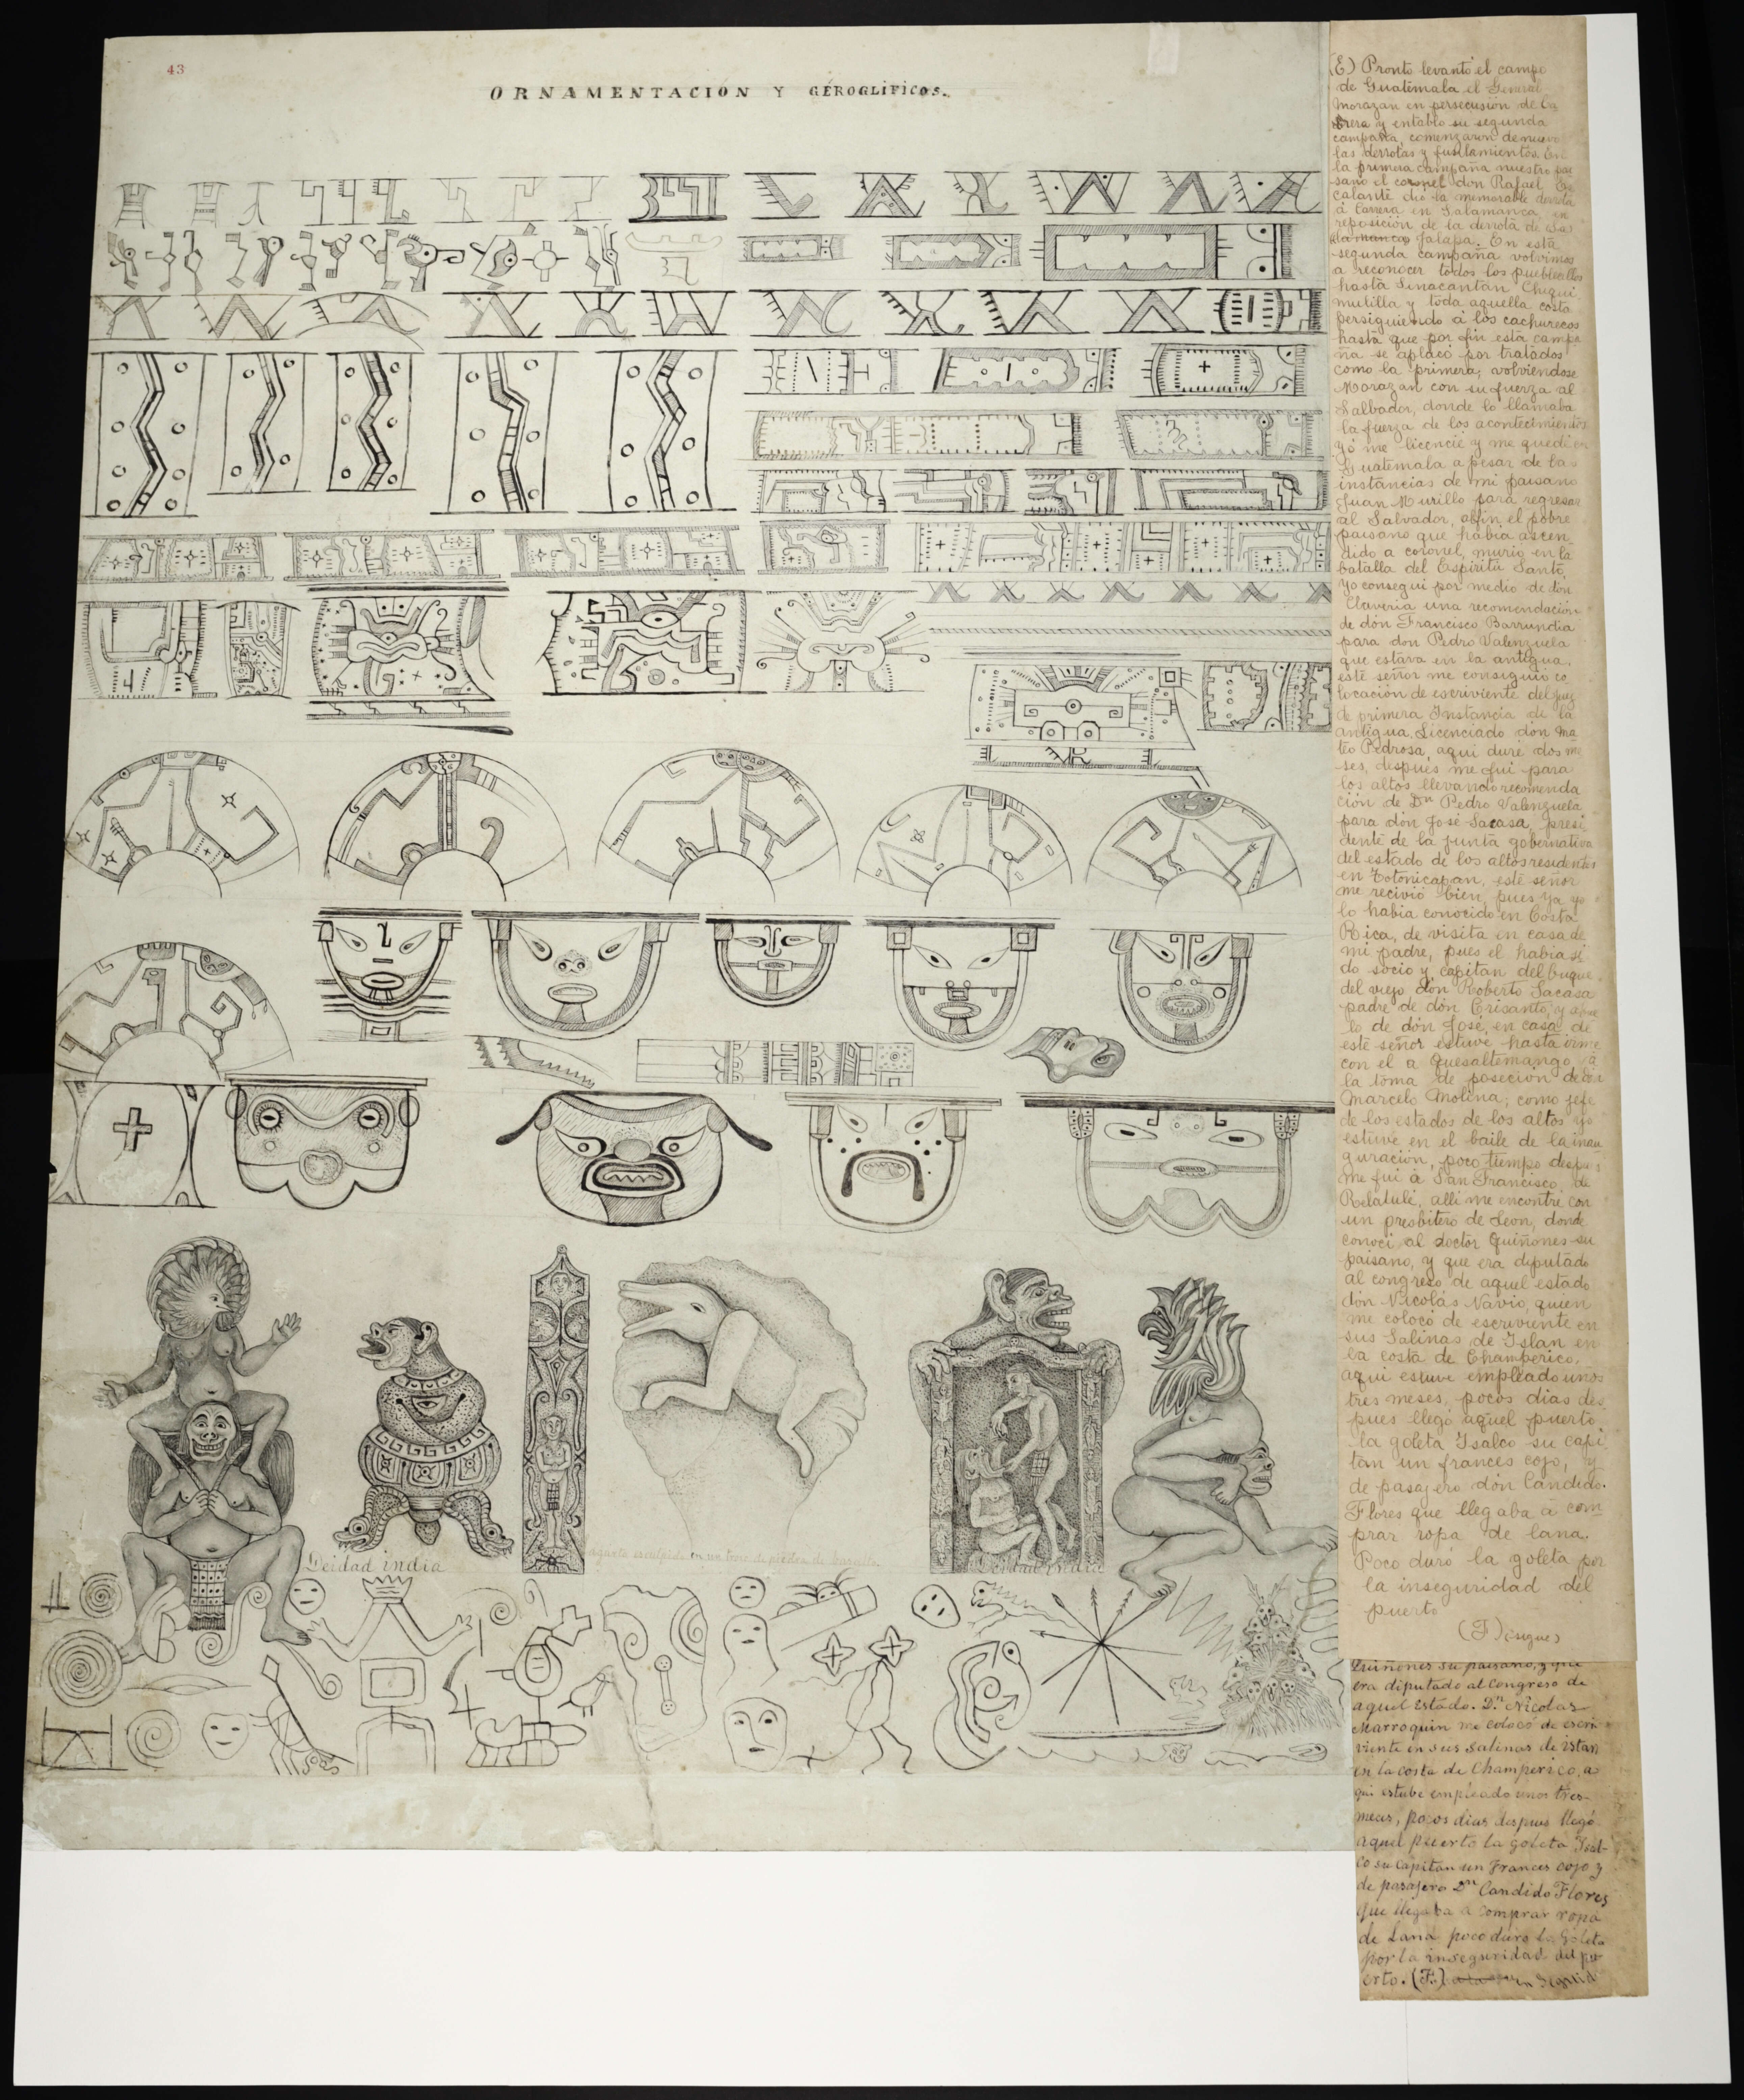 43
ORNAMENTACIÓN Y GÉROGLIFICOS.
(E) Pronto levantó el campo
de Guatemala el General
Morazán en persecusión de Ca
rrera y entabló su segunda
campaña, comenzaron denuevo
las derrotas y fusilamientos. En
la primera campaña nuestro pai
sano el coronel don Rafael Es
calante dió la memorable derrota
á Carrera en Salamanca en
reposición de la derrota de
Jalapa. En esta
segunda campaña volvimos
a reconocer todos los pueblecillos
hasta Sinacantán Chiqui
mulilla y toda aquella costa
persiguiendo á los cachurecos
hasta que por fin esta campa
ña se aplacó por tratados
como la primera; volviendose
Morazan con su fuerza al
Salbador, donde lo llamaba
la fuerza de los acontecimientos
yó me licencié y me quedé en
Guatemala a pesar de las
instancias de mi paisano
Juan Murillo para regresar
al Salvador, alfin el pobre
paisano que habia ascen
dido a coronel, murió en la
batalla del Espiritu Santo,
yo consegui por medio de don
Claveria una recomendación
de dón Francisco Barrundia
para don Pedro Valenzuela
que estava en la antigua,
esté señor me consiguió co
locación de escriviente del juz
de primera Instancia de la
antigua, Licenciado dón Ma
téo Pedrosa, aqui duré dos me
ses, después me fui para
los altos llevando recomenda
ción de Dn Pedro Valenzuela
para dón José Sacasa, presi
dente de la junta gobernativa
del estado de los altos residentes
en Totonicapan, esté señor
me recivió bien, pues ya yo
lo habia conocido en Costa
Rica, de visita en casa de
mi padre, pues el habia si
do socio y capitan del buque
del viejo don Roberto Sacasa
padre de dón Crisanto, y abue
lo de dón José, en casa de
esté señor estuve hasta irme
con el a Quesaltemango á
la toma de poseción de dón
Marcelo Molina; como jefe
de los estados de los altos yo
estuve en el baile de la inau
guración, poco tiempo después
me fui á San Francisco de
allí me encontré con
un presbitero de Leon, donde
conoci al doctor Quiñones su
paisano, y que era diputado
al congreso de aquel estado
dón Nicolás Navio, quien
me colocó de escriviente en
sus Salinas de Islan en
la costa de Chamberico,
aqui estuve empleado unos
tres meses, pocos dias des
pues llegó aquel puerto
la goleta Isalco su capi
tán un francés cojo, y
de pasajero dón Candido.
Flores que llegaba á com
prar ropa de lana.
Poco duró la goleta por
la inseguridad del
puerto
(F) (sigue)
Quiñones su paisano, y que
era diputado al congreso de
aquel Estado. Dn Nicolas
Marroquin me colocó de escri
viente en sus salinas de istan
en la costa de Champerico, a
qui estube empleado unos tres
meces, pocos dias despues llegó
aquel puerto la goleta Isal-
co su capitan un Frances cojo y
de pasajero Dn Candido Flores
que llegaba a comprar ropa
de Lana poco duro la Goleta
por la inseguridad del pu-
erto. (F.)
Deidad india
lagarto esculpido en un trozo de piedra de basalto.
Deidad india